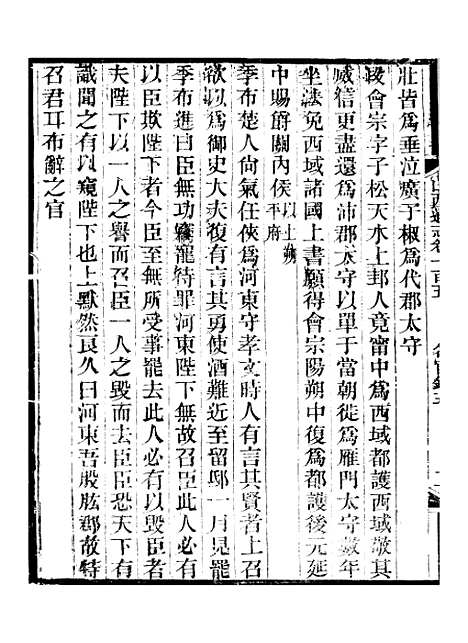 壯皆爲垂泣廣子椒爲代郡太守
段會宗字子松天水上邽人竟甯中爲西域都護西域敬其
威信更盡還爲沛郡太守以單于當朝徙爲雁門太守數年
坐法免西域諸國上書願得會宗陽朔中復爲都護後元延
中賜爵關內侯以上朔平府
季布楚人尙氣任俠爲河東守孝文時人有言其賢者上召
欲以爲御史大夫復有言其勇使酒難近至留邸一月見罷
季布進曰臣無功竊寵待罪河東陛下無故召臣此人必有
以臣欺陛下者今臣至無所受事罷去此人必有以毀臣者
夫陛下以一人之譽而召臣一人之毀而去臣臣恐天下有
識聞之有以窺陛下也上默然良久曰河東吾股肱郡故特
召君耳布辭之官